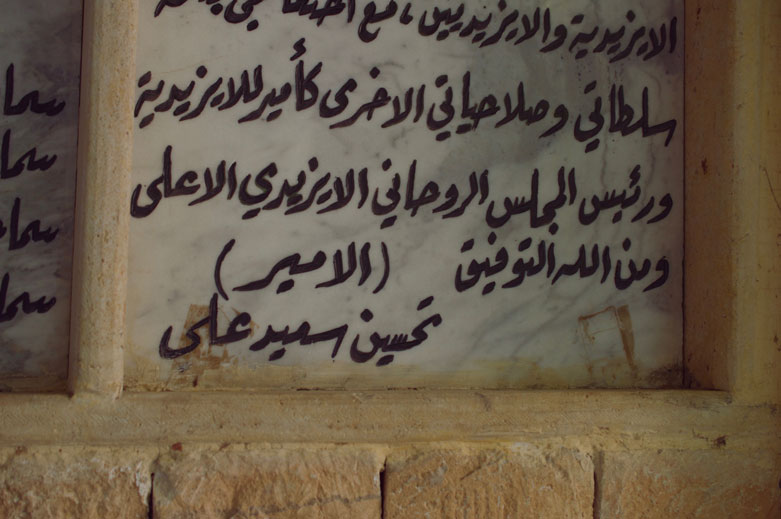 الايزيدية والايزيديين، مع
سلطاتي وصلاحياتي الاخرى كأمير للايزيدية
ورئيس المجلس الروحاني الايزيدي الاعلى
ومن الله التوفيق (الامير)
تحسين سعيد علي
سما
سما
سما
سما